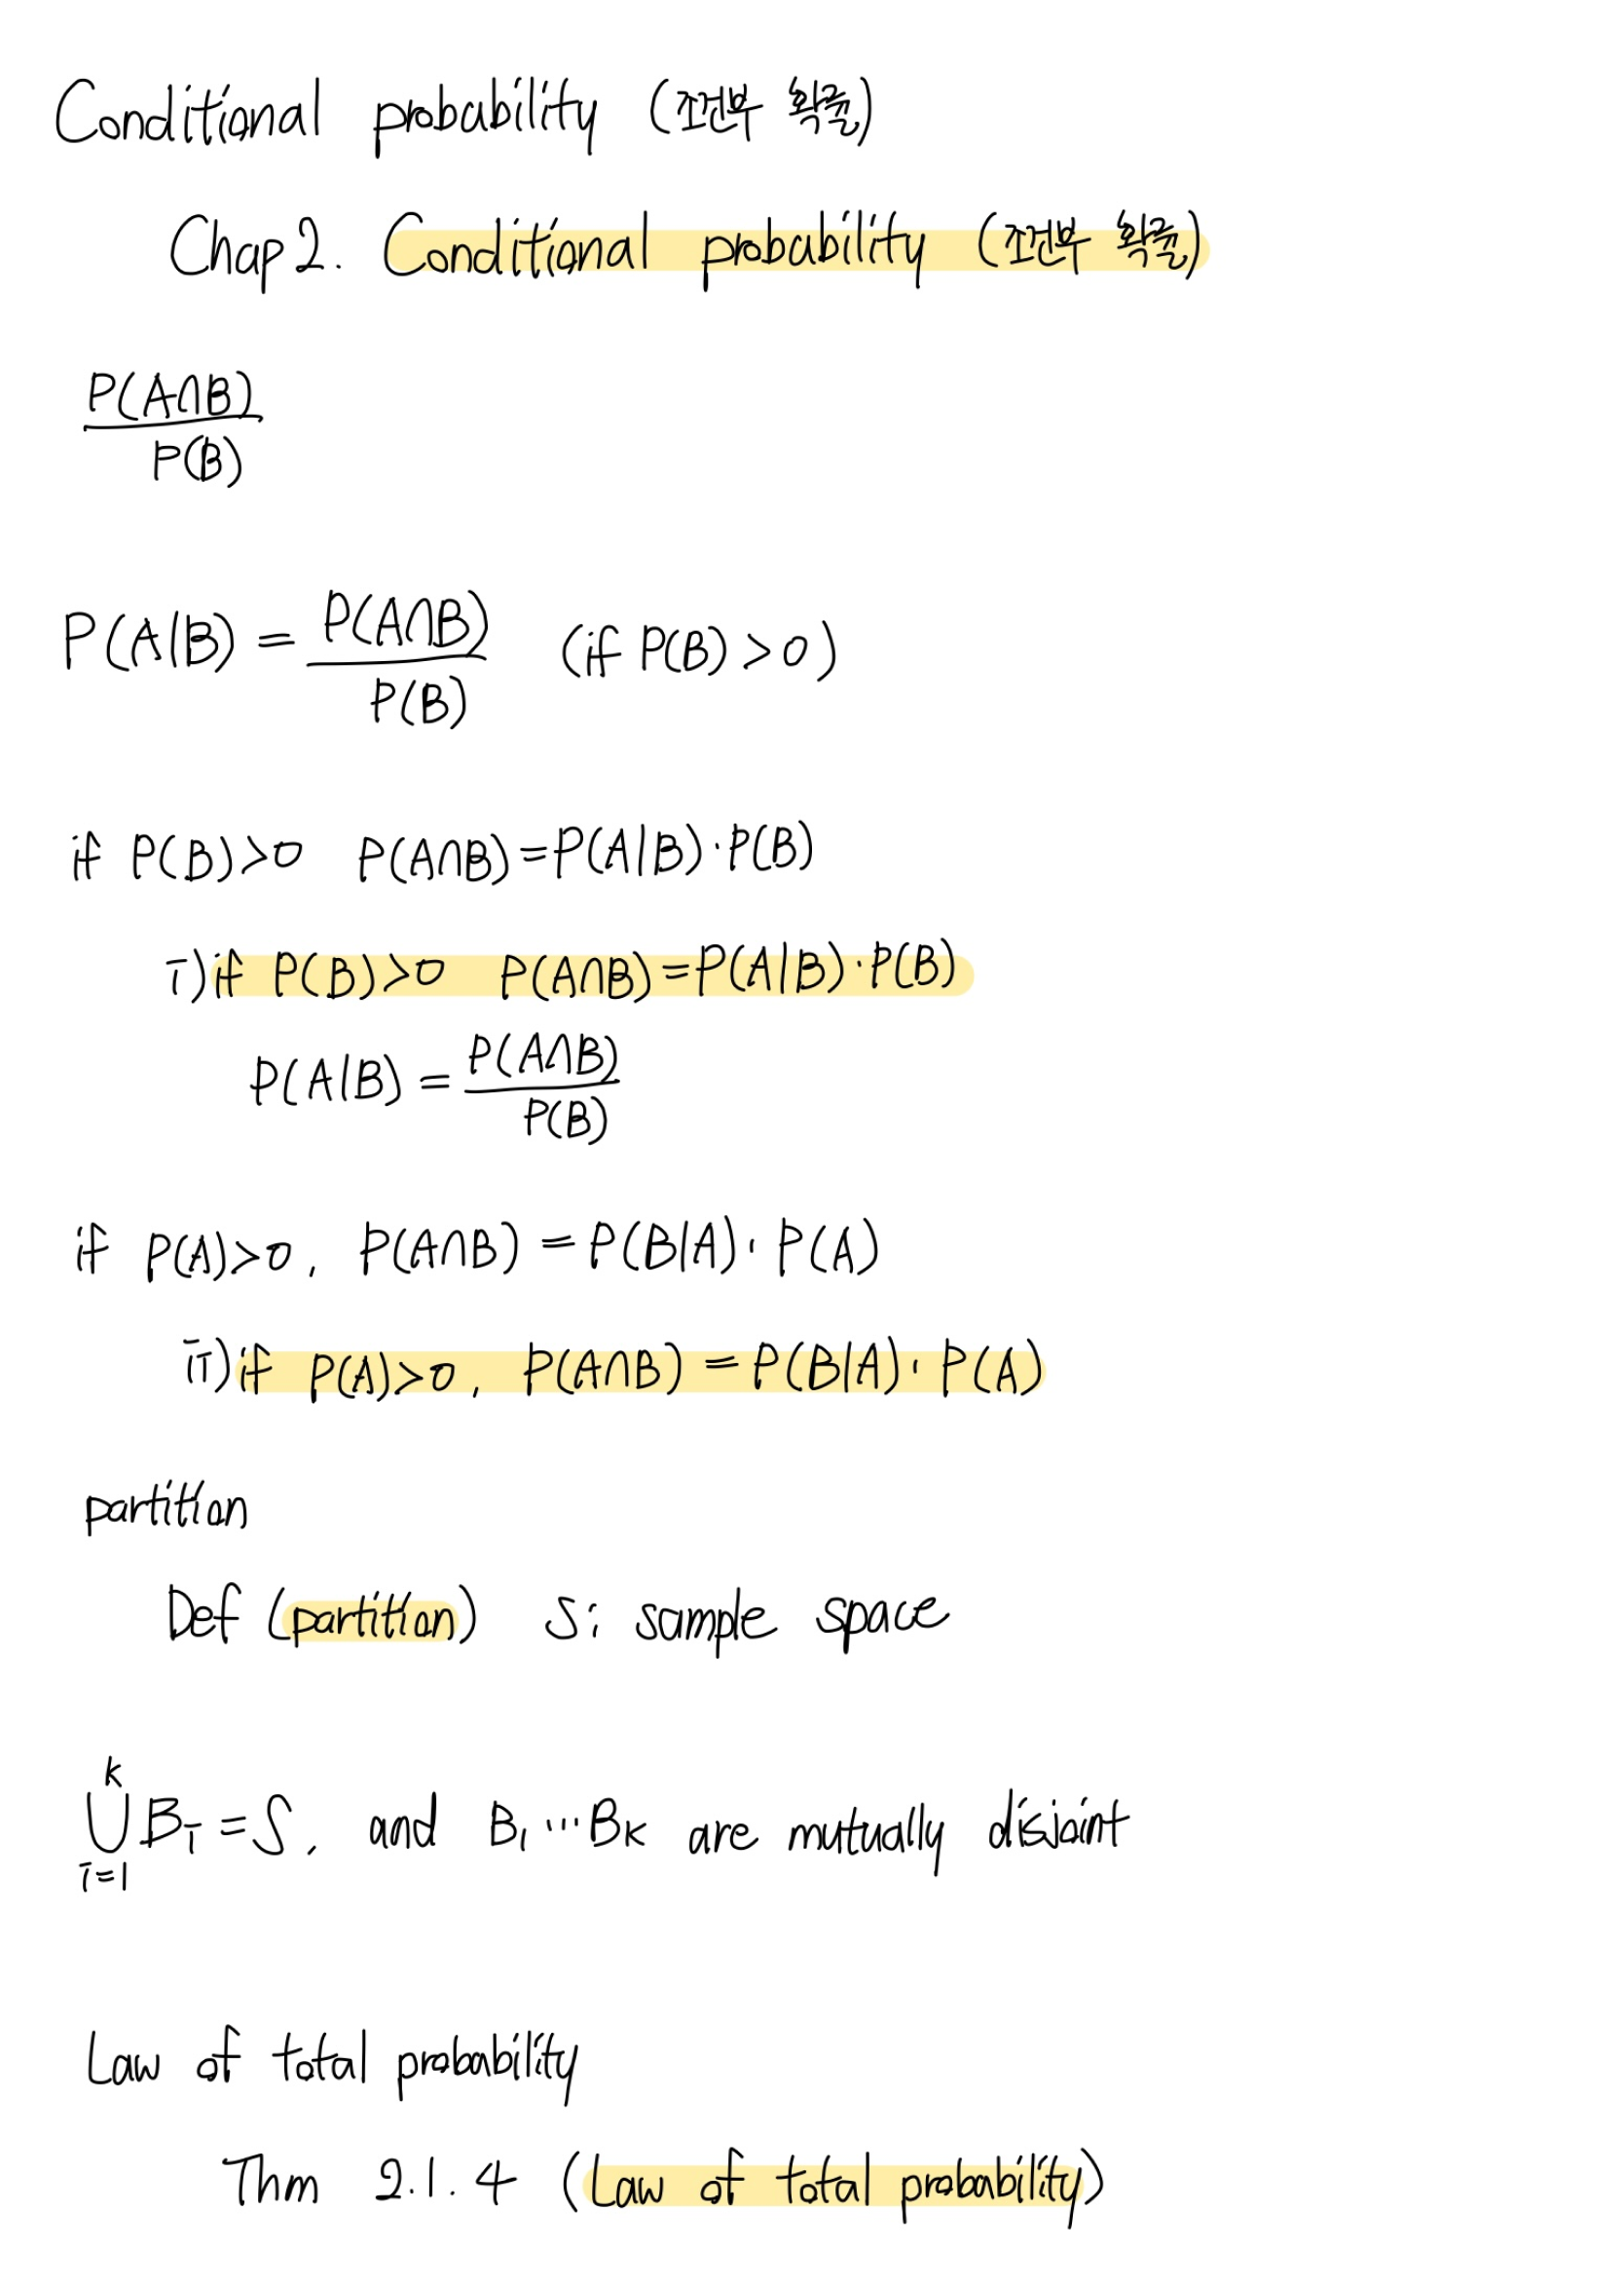 Conditional probability (조건부 확률)
Chap 2. Conditional probability (조건부 확률)
P(A∩B)
P(B)
P(A|B) = P(A∩B) / P(B) (if P(B) > 0)
if P(B)>0 P(A∩B)=P(A|B)·P(B)
i) if P(B)>0 P(A∩B)=P(A|B)·P(B)
P(A|B) = P(A∩B) / P(B)
if P(A)>0, P(A∩B) = P(B|A)· P(A)
ii) if P(A)>0, P(A∩B) = P(B|A)· P(A)
partition
Def (partition) S: sample space
⋃_{i=1}^{k} B_i = S, and B_1 ⋯ B_k are mutually disjoint
Law of total probability
Thm 2.1.4 (Law of total probability)